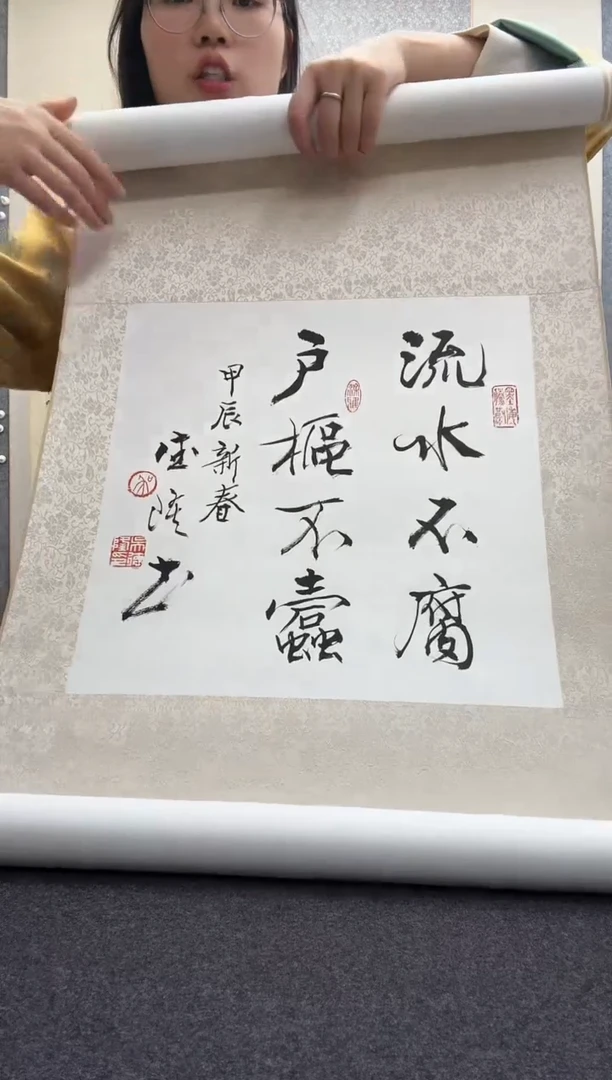 流水不腐
户枢不蠹
甲辰新春